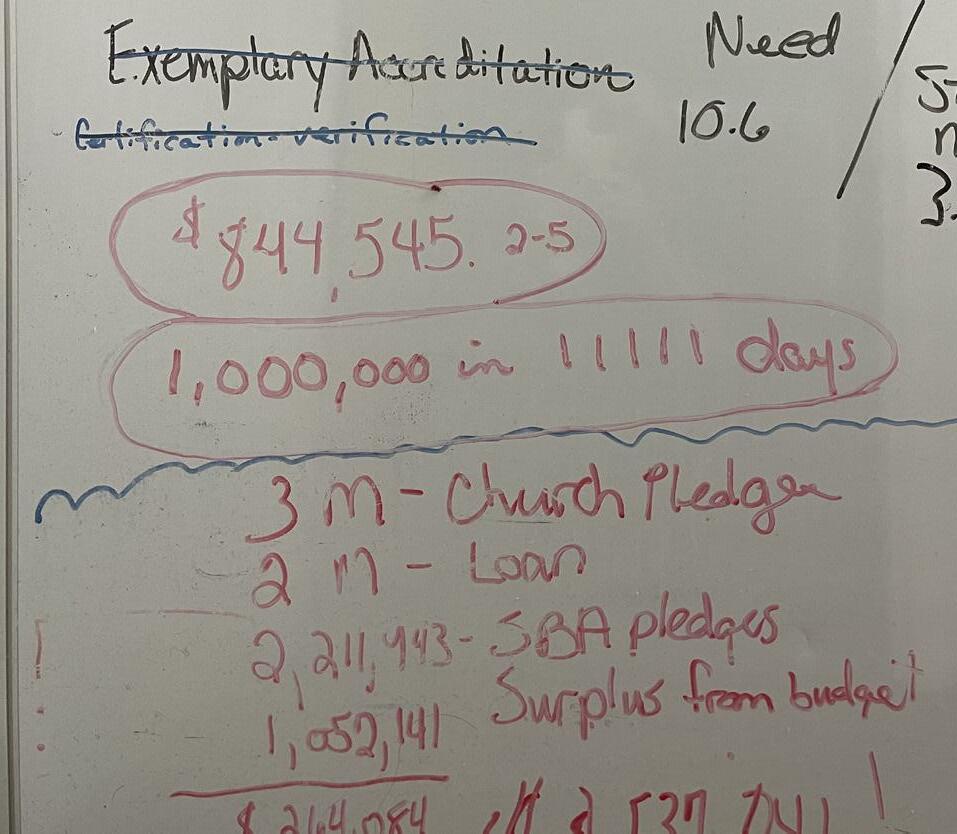 Exemplary Accreditation
Certification-verification
Need
10.6
$844,545. 2-5
1,000,000 in 11111 days
3 M - Church Pledges
2 M - Loan
2,211,943 - SBA pledges
1,052,141 Surplus from budget
3.